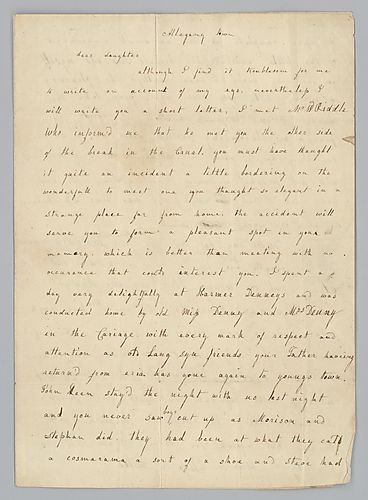 Allegany Town
dear daughter
although I find it troublesom for me
to write on account of my age, neverthelap I
will write you a short letter, I met Mr Riddle
Who informd me that he met you the other side
of the break in the Canal, you must have thought
it quite an incident a little bordering on the
wonderfull to meet one you thought so elegant in a
strange place far from home. the accident will
serve you to form a pleasant spot in your
memory. which is better than meeting with no
occurance that could interest you. I spent a
day very delightfully at Harmer Denneys and was
conducted home by old Mip Denny and Mrs Denny
in the Cariage with every mark of respect and
attention as Lang syn friends. your Father having
returnd from erie has gone again to youngs town.
John Keen stayd the night with us last night
and you never saw boys cut up as Morison and
Stephen did. they had been at what they call
a cosmarama a sort of a shoe and steve had